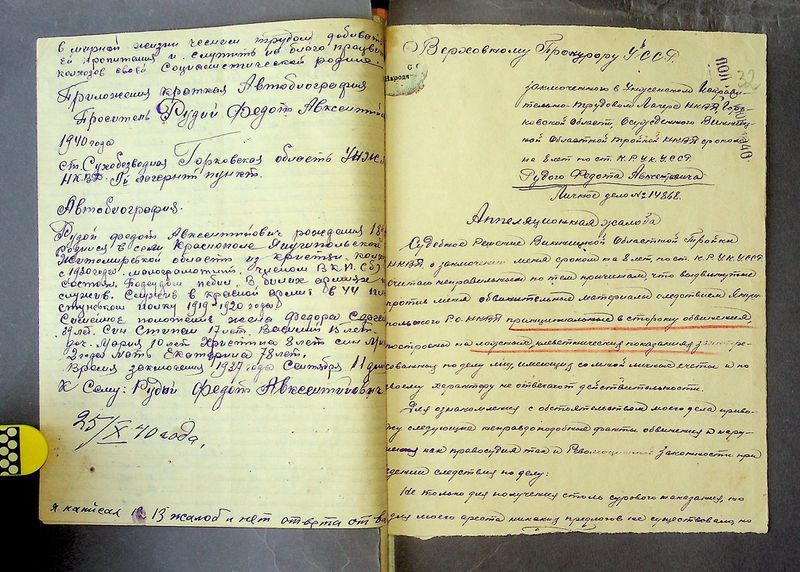 в мирной жизни чесним трудом добиват
ей пропитания и служить на благо процвен
колхозов своей социалистической родине.
Приложения краткая Автобиография
Проситель Рудий Федот Авксентиев
1940 года
ст. Сухобезводная Горковская область УНЖ
НКВД. лагерит пункт.
Автобиография.
Рудой Федот Авксентийович рождения 18
Родился в селе Краснополе Янушпольской
Житомирской области из крестян
с 1930 года. малограмотний. членом В.К.П.(б)
состоял. в билих армиях
служив. Служив в красной армии в 44
стунском полку 1919-1920 годов
Семейное положение жена Федора
39 лет. Син Степан 17 лет. Василий 15 лет.
доч. Мария 10 лет Христина 8 лет син
2 года мать Екатерина 78 лет.
Время заключения 1937 года Сентября 11 дня
К сему: Рудый Федот Авксентийович
25/X 40 года.
я написал 13 жалоб и нет ответа от
Верховному Прокурору УССР.
СГ
Народн
32
1940
заключенного в Унженском Исправи-
тельно-трудовом Лагере НКВД Горь-
ковской области, Осужденного Винниц-
кой Областной Тройкой НКВД сроком
на 8 лет по ст. К.Р. УК УССР
Рудого Федота Авксентьевича
Личное дело № 14868.
Аппеляционная жалоба
Судебное Решение Винницкой Областной Тройки
НКВД о заключении меня сроком на 8 лет, по ст. К.Р. УК УССР
считаю неправильным по тем причинам что выдвинутые
против меня обвинительные материалы следствием Януш-
польского Р.О. НКВД принципиально в сторону обвинения
построены на ложных клеветнических показаниях заинтере-
сованных по делу лиц, имеющих со мной личные счеты и по
своему характеру не отвечают действительности.
Для ознакомления с обстоятельством моего дела приво-
жу следующие неправдоподобные факты обвинения и нару-
шения как правосудия так и Революционной законности при
ведении следствия по делу:
Не только для получения столь сурового наказания, но
для моего ареста никаких предлогов не существовало, но